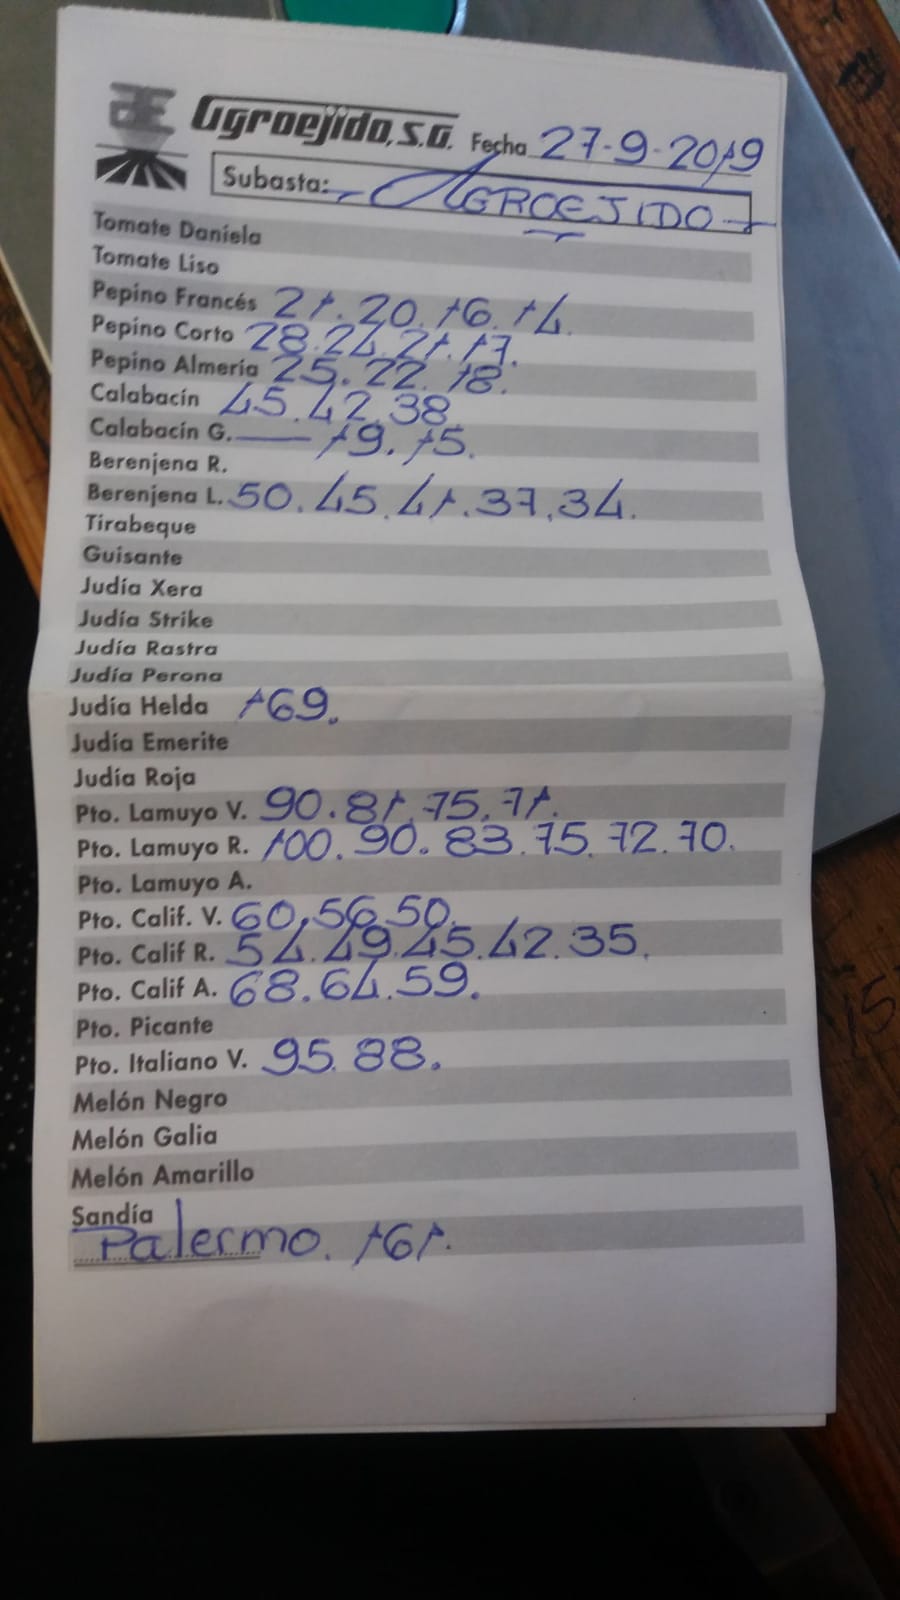 Agroejido, S.G. Fecha 27-9-2019
Subasta: AGROEJIDO
Tomate Daniela
Tomate Liso
Pepino Francés 21. 20. 16. 14.
Pepino Corto 28. 24. 21. 17.
Pepino Almería 25. 22. 18.
Calabacín 45. 42. 38.
Calabacín G. — 19. 15.
Berenjena R.
Berenjena L. 50. 45. 41. 37. 34.
Tirabeque
Guisante
Judía Xera
Judía Strike
Judía Rastra
Judía Perona
Judía Helda 169.
Judía Emerite
Judía Roja
Pto. Lamuyo V. 90. 81. 75. 71.
Pto. Lamuyo R. 100. 90. 83. 75. 72. 70.
Pto. Lamuyo A.
Pto. Calif. V. 60. 56. 50.
Pto. Calif R. 54. 49. 45. 42. 35.
Pto. Calif A. 68. 64. 59.
Pto. Picante
Pto. Italiano V. 95. 88.
Melón Negro
Melón Galia
Melón Amarillo
Sandía
Palermo. 161.